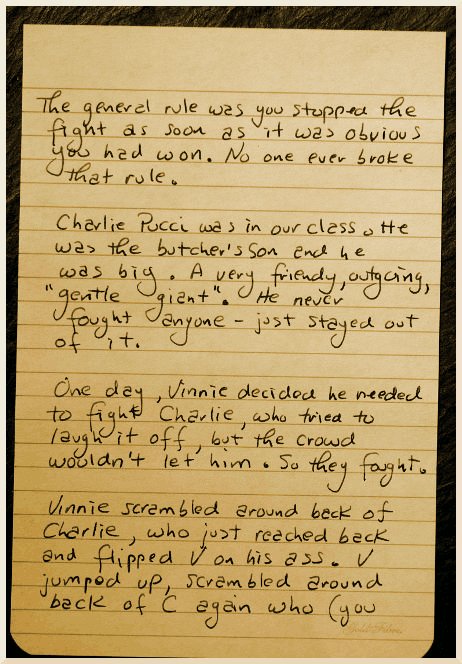 The general rule was you stopped the
fight as soon as it was obvious
you had won. No one ever broke
that rule.
Charlie Pucci was in our class. He
was the butcher's son and he
was big. A very friendly, outgoing,
"gentle giant". He never
fought anyone - just stayed out
of it.
One day, Vinnie decided he needed
to fight Charlie, who tried to
laugh it off, but the crowd
wouldn't let him. So they fought.
Vinnie scrambled around back of
Charlie, who just reached back
and flipped V on his ass. V
jumped up, scrambled around
back of C again who (you